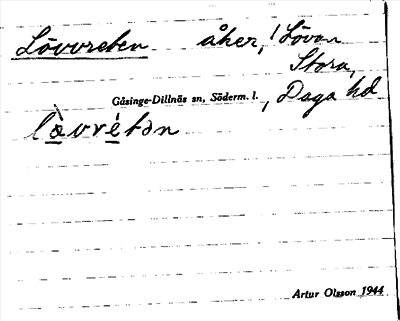 Lövvreten åker, Lövön
Stora,
Gåsinge-Dillnäs sn, Söderm. l., Daga hd
lòvvrétən
Artur Olsson 1944